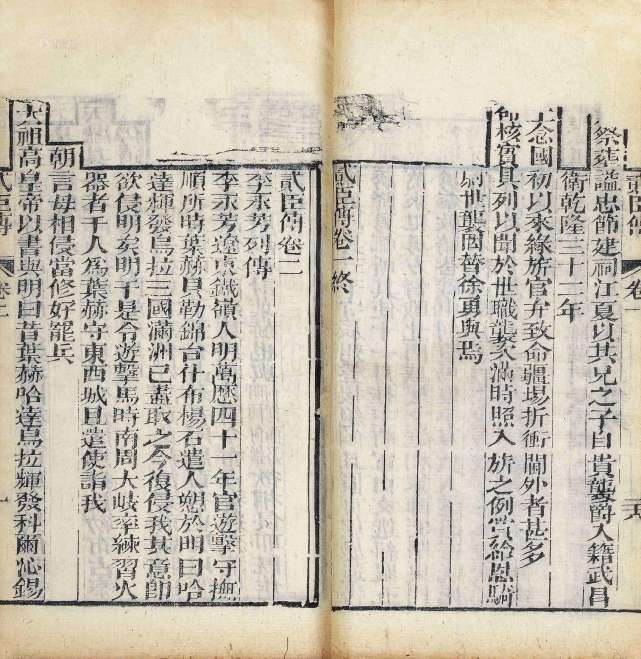 貳臣傳 卷一
祭葬謚忠節建祠江夏以其兄之子自貴襲爵入籍武昌
衛乾隆三十二年
上念國初以來綠旂官弁致命疆場折衝閫外者甚多
命核實具列以聞於世職襲次滿時照八旂之例賞給恩騎
尉世襲罔替徐勇與焉
貳臣傳卷一終
貳臣傳卷二
李永芳列傳
李永芳遼東鐵嶺人明萬歷四十一年官遊擊守撫
順所時葉赫貝勒錦台什布楊石遣人愬於明曰哈
達輝發烏拉三國滿洲已盡取之今復侵我其意即
欲侵明矣明于是令遊擊馬時南周大岐率練習火
器者千人爲葉赫守東西城且遣使諭我
朝言毋相侵當修好罷兵
太祖高皇帝以書與明曰昔葉赫哈達烏拉輝發科爾沁錫
貳臣傳 卷二